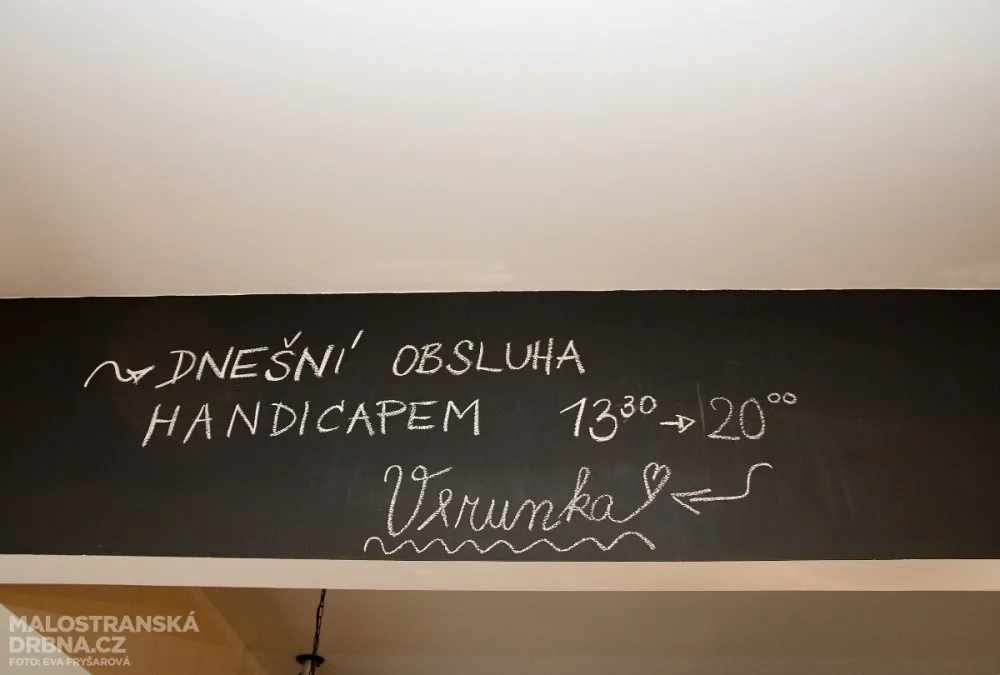 DNEŠNÍ OBSLUHA
HANDICAPEM 13³⁰ → 20⁰⁰
Verunka
MALOSTRANSKÁ
DRBNA.CZ
FOTO: EVA FRYŠAROVÁ